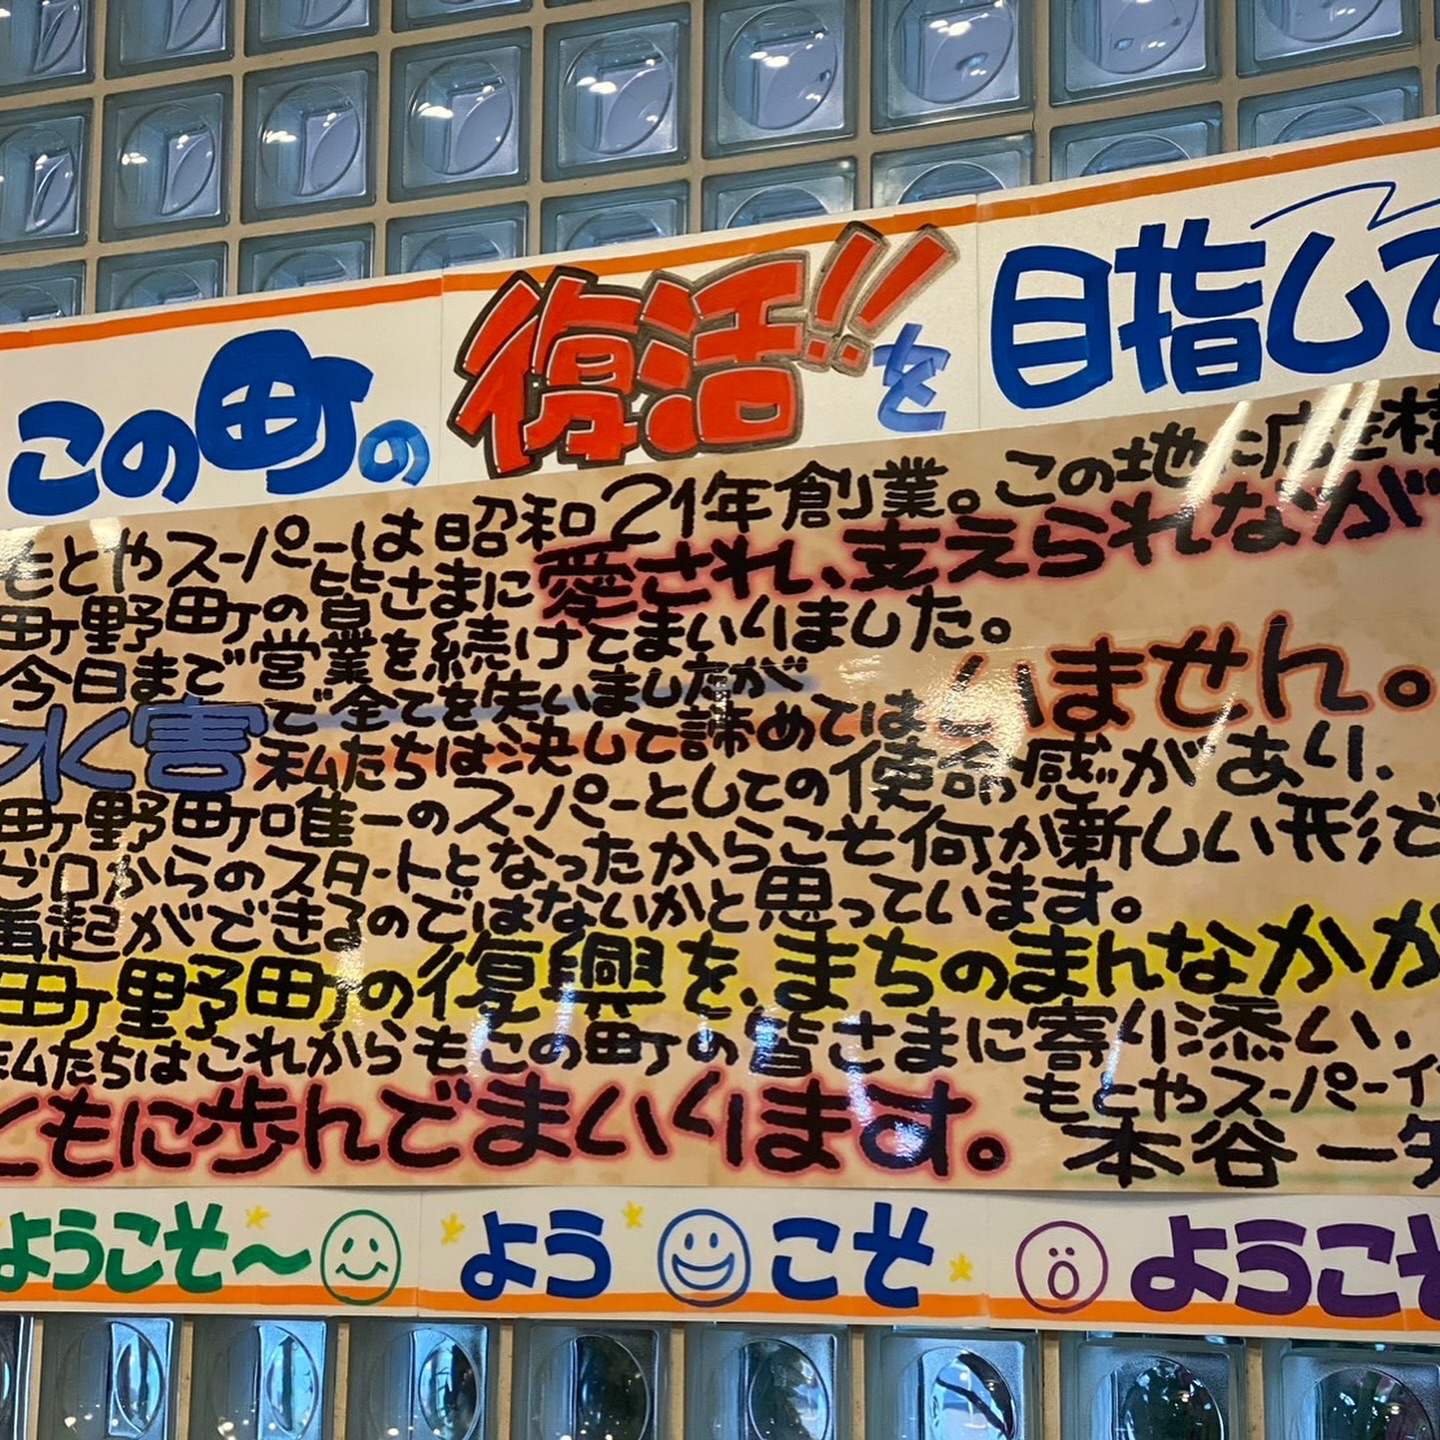 この町の復活!!を目指して
もとやスーパーは昭和21年創業。この地に店を構
町野町の皆さまに愛され、支えられなが
今日まで営業を続けてまいりました。
水害で全てを失いましたが
私たちは決して諦めてはいません。
町野町唯一のスーパーとしての使命感があり、
ゼロからのスタートとなったからこそ何か新しい形で
再起ができるのではないかと思っています。
町野町の復興を、まちのまんなかか
私たちはこれからもこの町の皆さまに寄り添い、
ともに歩んでまいります。
もとやスーパー
本谷一
ようこそ〜
ようこそ
ようこそ